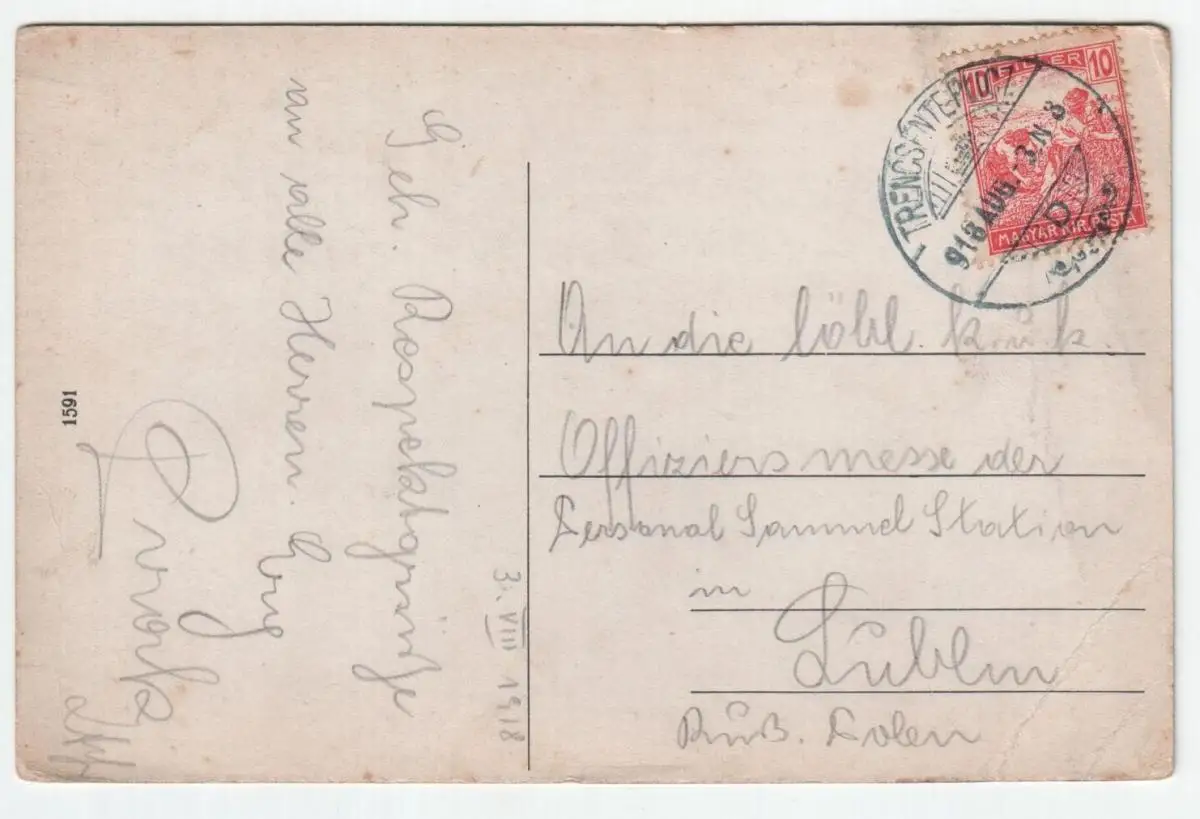 Geh. Respektsgrüße
an alle Herren. Euer
3. VIII 1918
1591
10 FILLÉR 10
MAGYAR KIR. POSTA
918 AUG. 3. N 3
D
An die löbl. k. u. k.
Offiziersmesse der
Personal Sammel Station
in
Lublin
Ruß. Polen